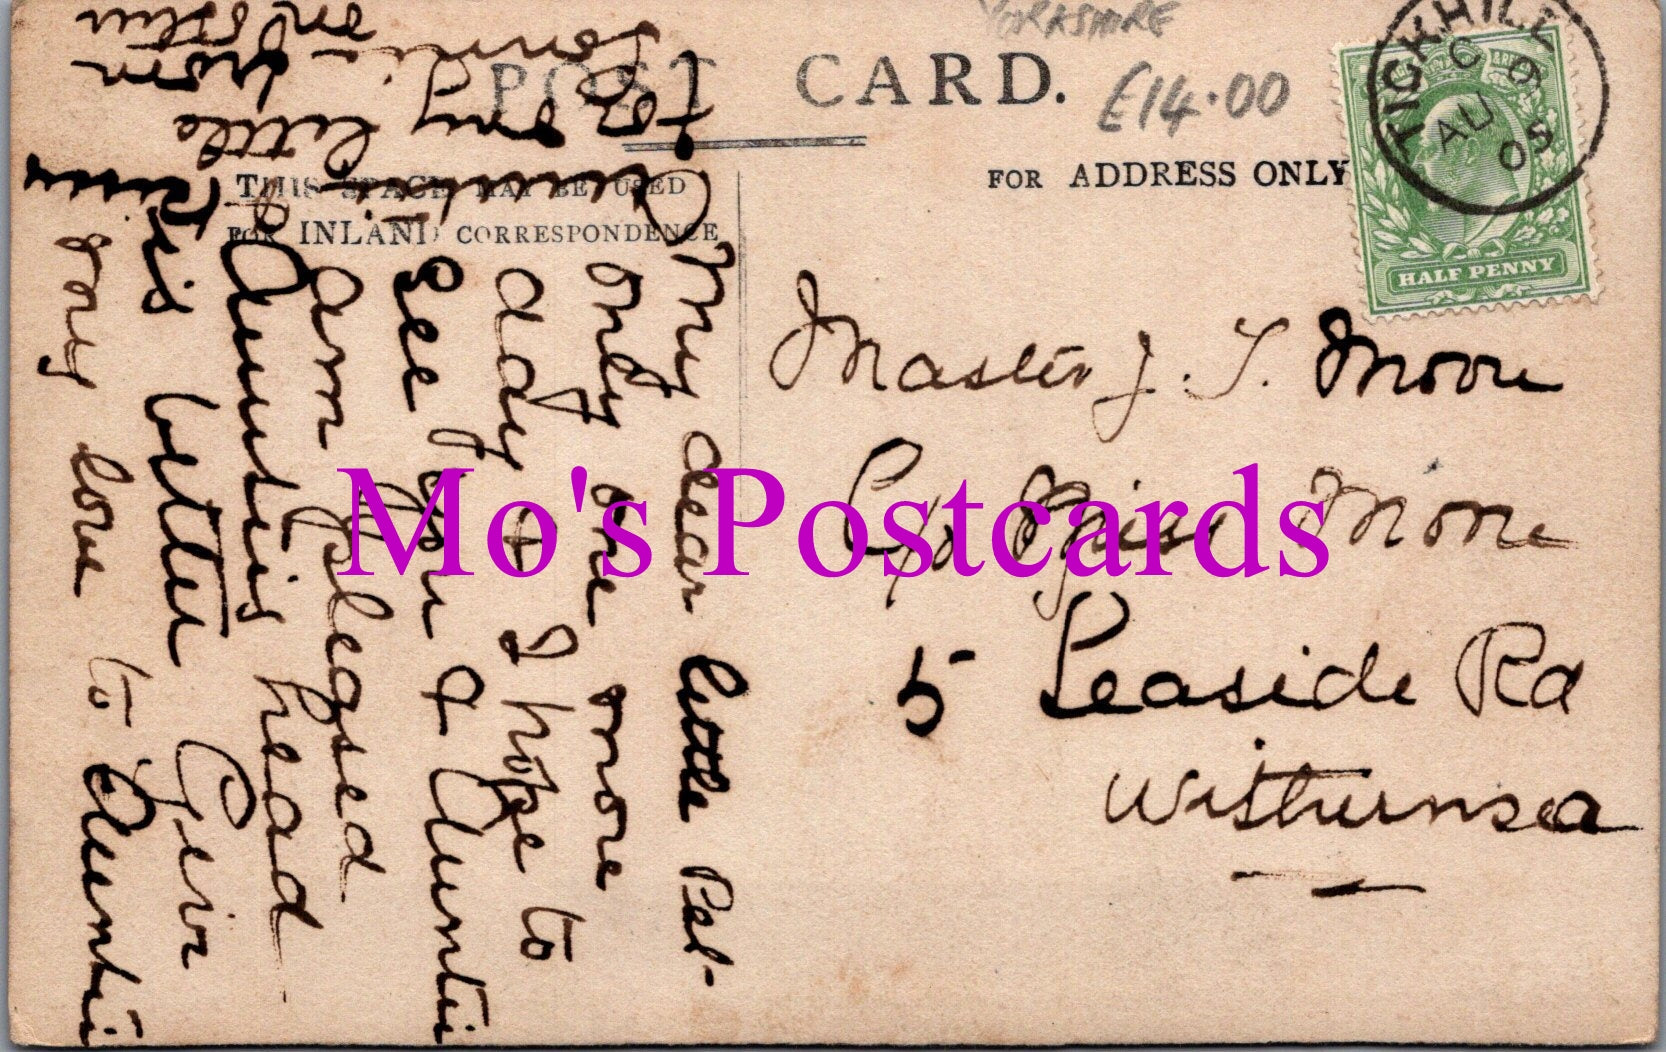 YORKSHIRE
POST CARD.
£14.00
THIS SPACE MAY BE USED
FOR INLAND CORRESPONDENCE
FOR ADDRESS ONLY
TICKHILL
C
AU
05
HALF PENNY
Master J. T. Moore
C/o Miss Moore
5 Seaside Rd
Withernsea
My dear little Pet-
only one more
day & I hope to
see you & Auntie
am pleased
Auntie's head
is better Give
love to Auntie
to my little
from
Mo's Postcards